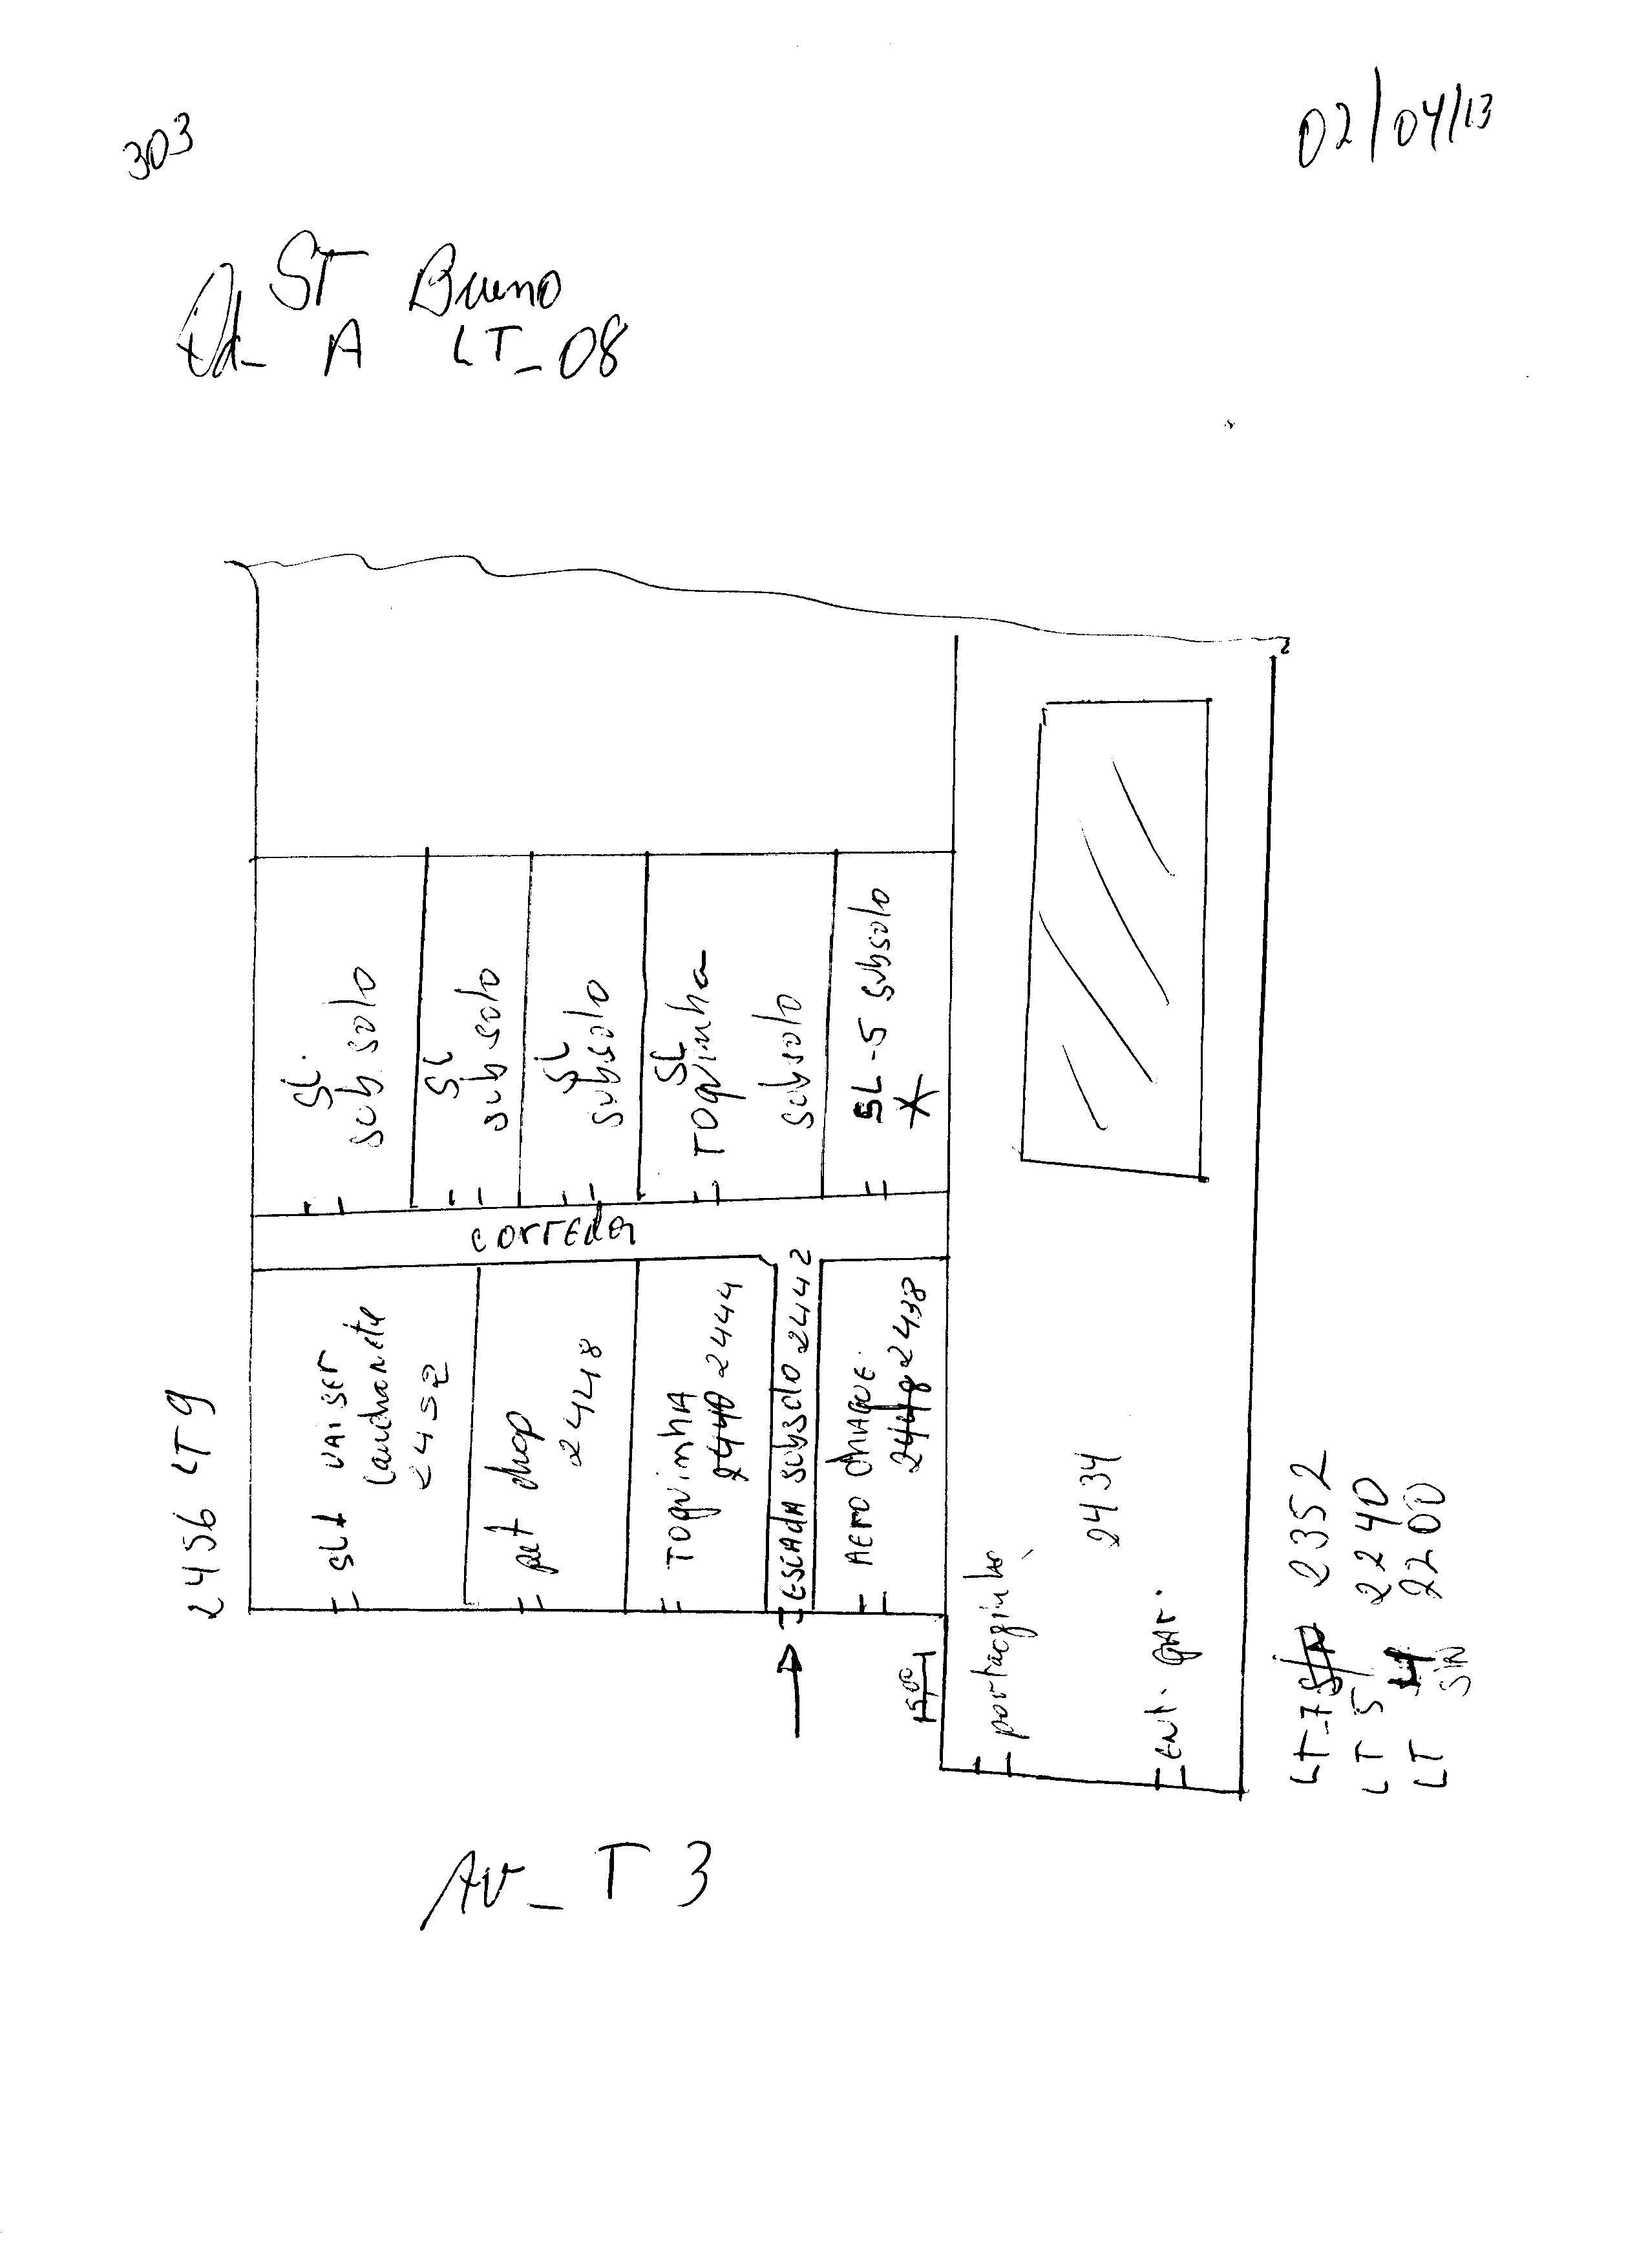 303
02/04/13
ST Bueno
Qd_ A LT_08
2456 LT 9
SL.
sub solo
SL
sub solo
SL
subsolo
SL
TOQuinha
subsolo
SL-5 subsolo
*
correder
SL1 VAI SER
Lanchonete
2452
pet shop
2448
TOQuinhA
2440 2444
ESCADA SUBSOLO 2442
AERO
2448 2438
5,00
2434
ENt. gar.
LT-7 S/N 2352
LT 5 2240
LT 4 2200
S/N
AV_ T 3